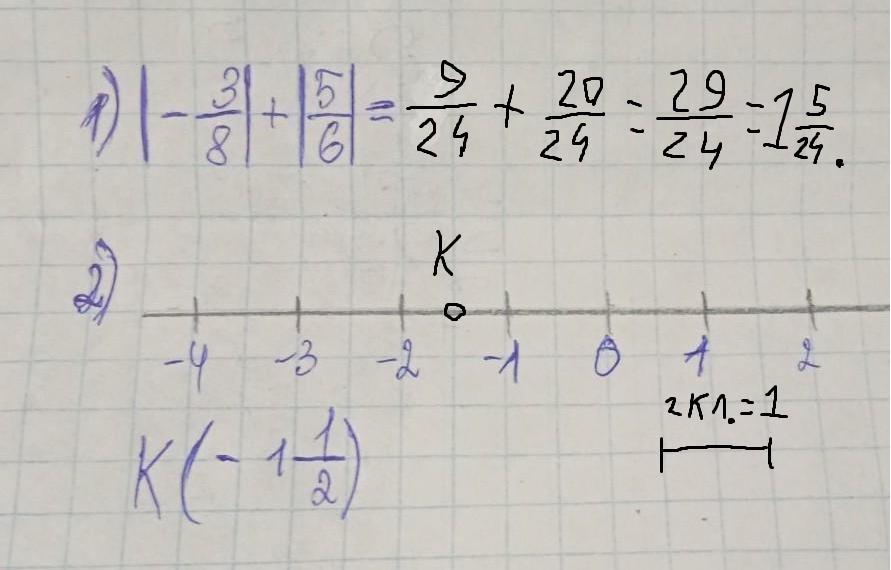 1) |-3/8| + |5/6| = 9/24 + 20/24 = 29/24 = 1 5/24.
2) K
-4 -3 -2 -1 0 1 2
2кл.=1
K(-1 1/2)